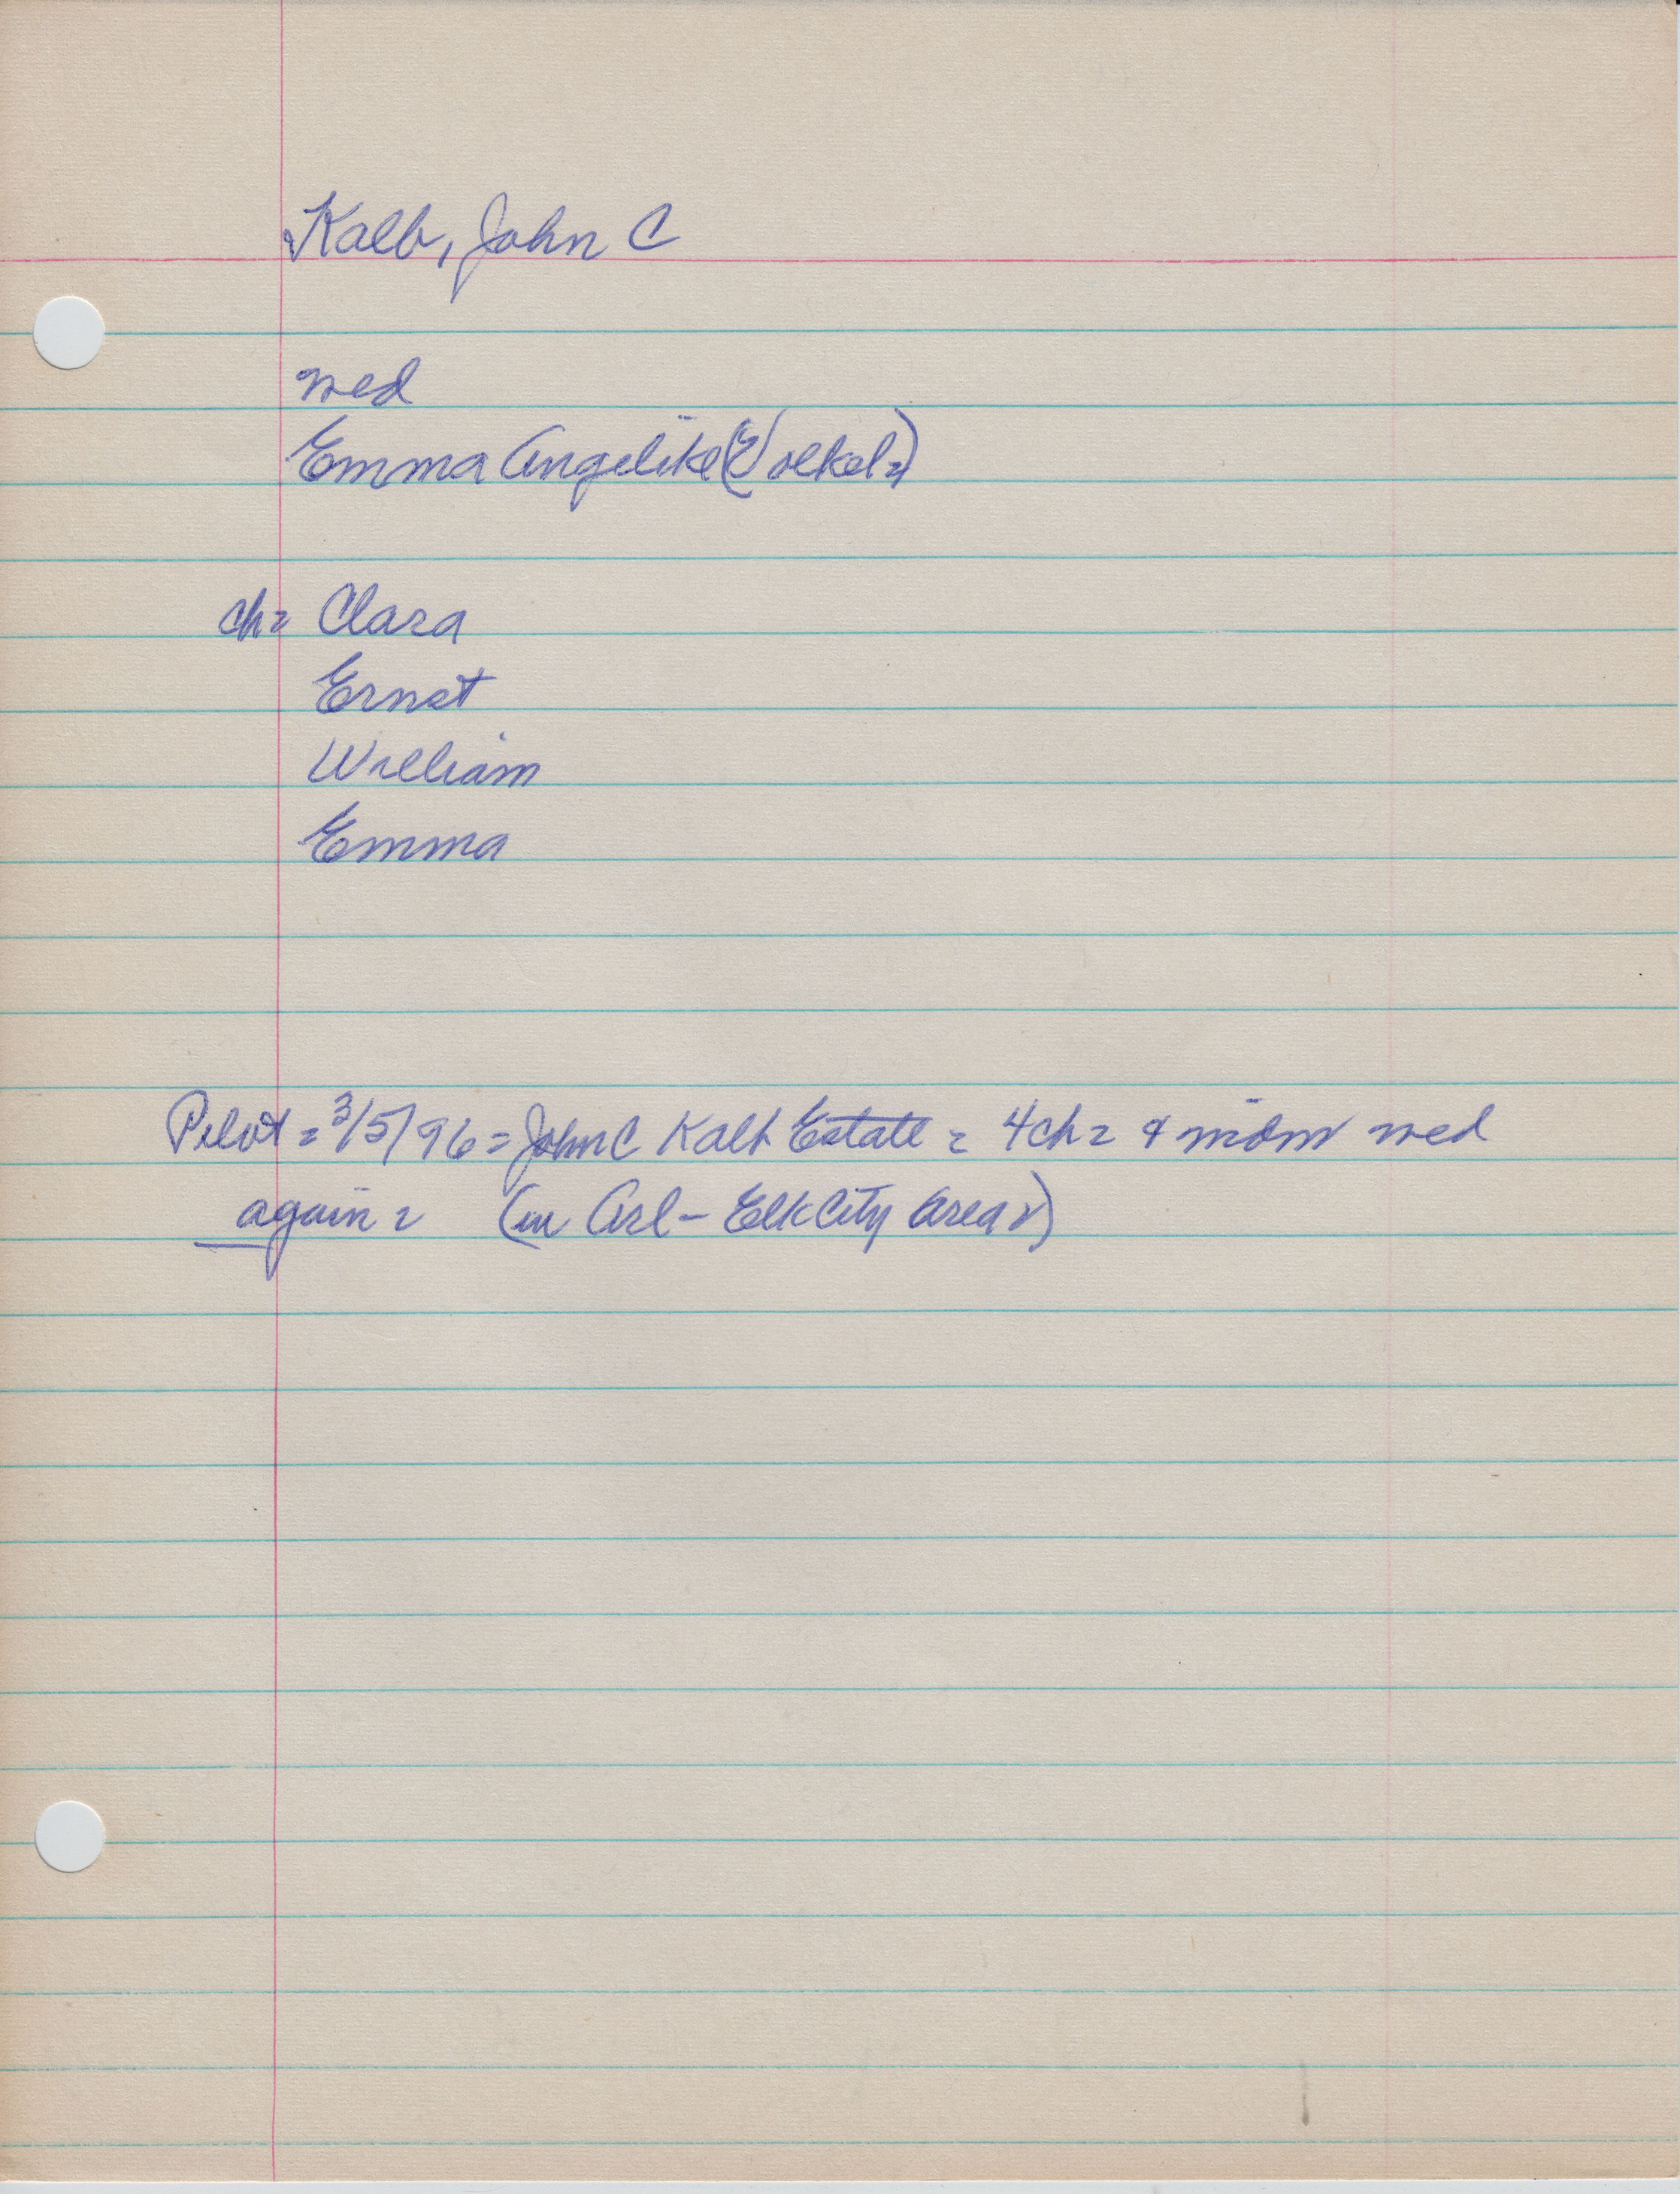 Kalb, John C
med
Emma Angelike (Voelkel=)
ch= Clara
Ernst
William
Emma
Pilot = 3/5/96 = John C Kalb Estate = 4ch= & midm med
again = (in Arl - Elk City area=)